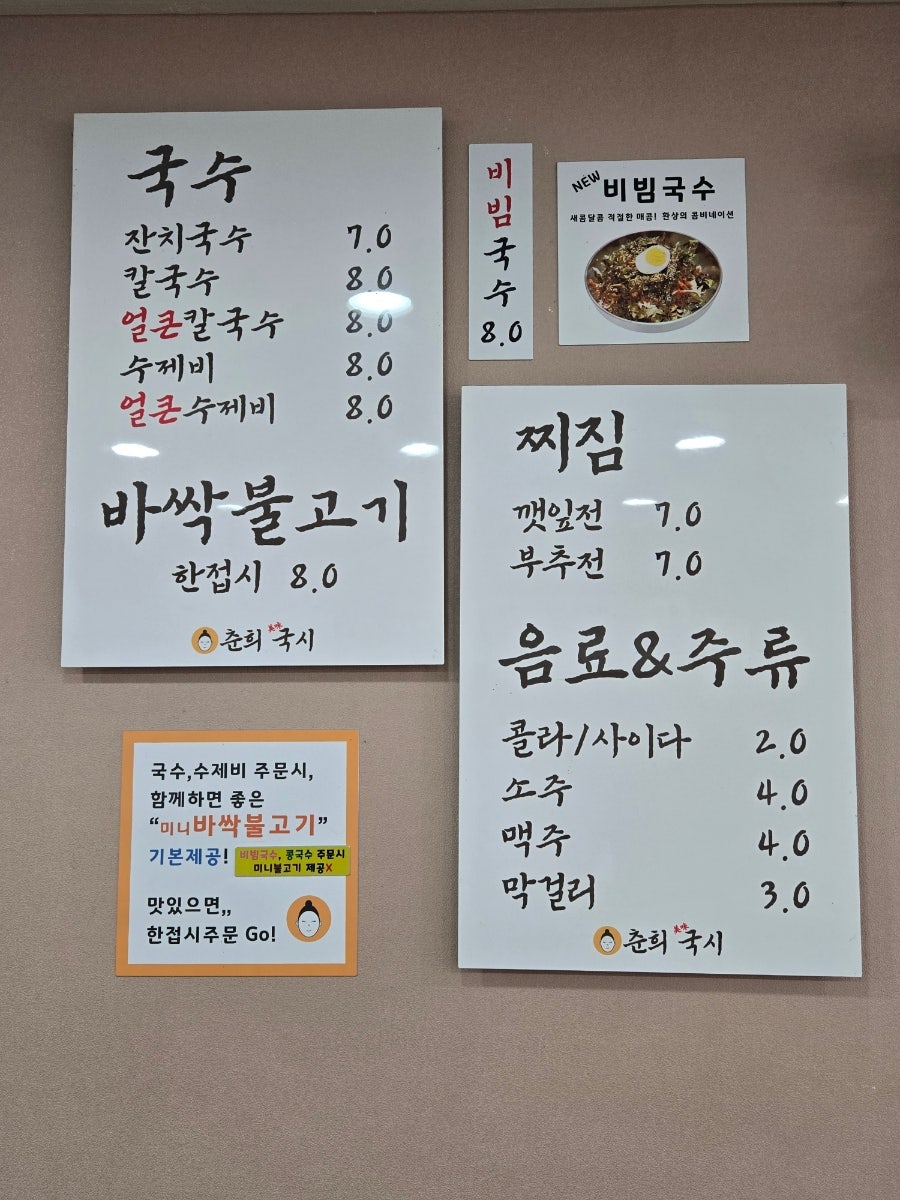 국수
잔치국수 7.0
칼국수 8.0
얼큰칼국수 8.0
수제비 8.0
얼큰수제비 8.0
바싹불고기
한접시 8.0
춘희 美味 국시
비빔국수 8.0
NEW 비빔국수
새콤달콤 적절한 매콤! 환상의 콤비네이션
찌짐
깻잎전 7.0
부추전 7.0
음료&주류
콜라/사이다 2.0
소주 4.0
맥주 4.0
막걸리 3.0
춘희 美味 국시
국수,수제비 주문시,
함께하면 좋은
“미니바싹불고기”
기본제공!
비빔국수, 콩국수 주문시
미니불고기 제공X
맛있으면,,
한접시주문 Go!